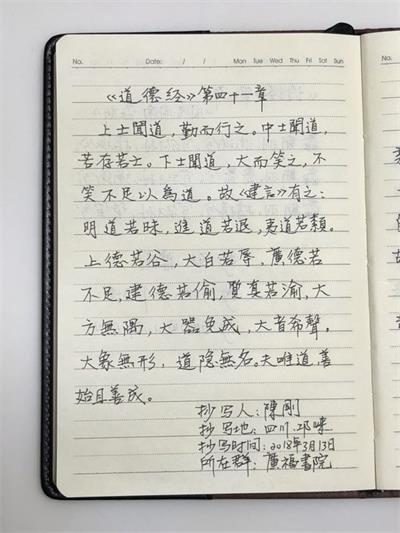 No.
Date: / / Mon Tue Wed Thu Fri Sat Sun
No.
《道德经》第四十一章
上士聞道，勤而行之。中士聞道，
若存若亡。下士聞道，大而笑之，不
笑不足以為道。故《建言》有之：
明道若昧，進道若退，夷道若纇。
上德若谷，大白若辱，廣德若
不足，建德若偷，質真若渝，大
方無隅，大器免成，大音希聲。
大象無形，道隐無名。夫唯道，善
始且善成。
抄写人：陳剛
抄写地：四川.邛崃
抄写时间：2018年3月13日
所在群：廣福書院